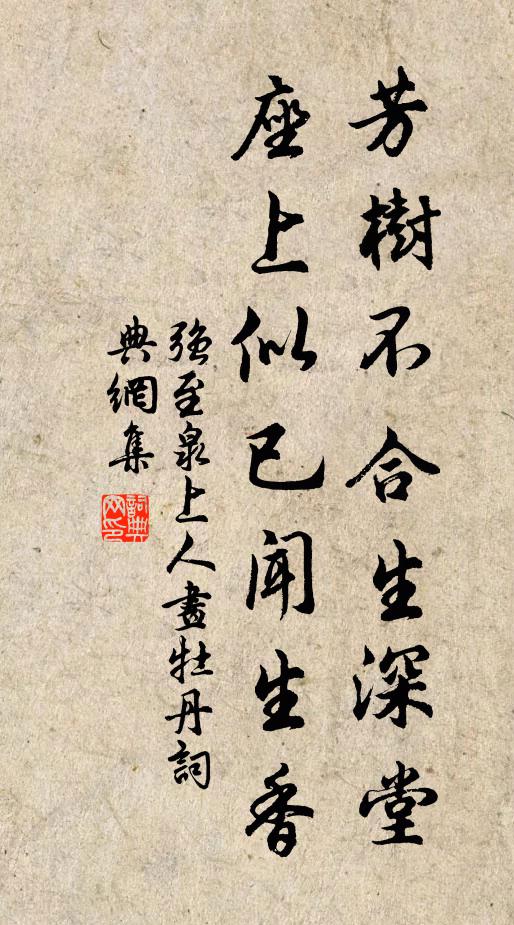 芳樹不合生深堂
座上似已聞生香
強至泉上人畫牡丹詞
典網集
詞典網印